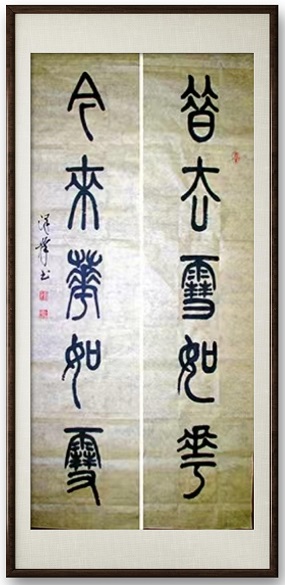 昔去雪如花
今來華如雪